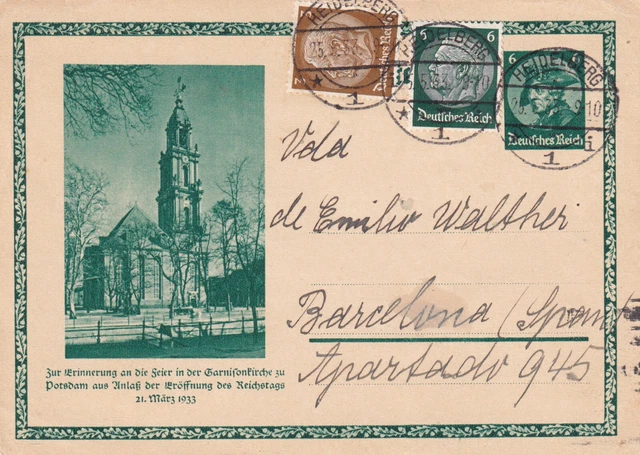 HEIDELBERG
1
3
Deutsches Reich
HEIDELBERG
1
6 6
Deutsches Reich
HEIDELBERG
1
6
Deutsches Reich
Vda
de Emilio Walther
Barcelona (Span
Apartado 945
Zur Erinnerung an die Feier in der Garnisonkirche zu
Potsdam aus Anlaß der Eröffnung des Reichstags
21. März 1933